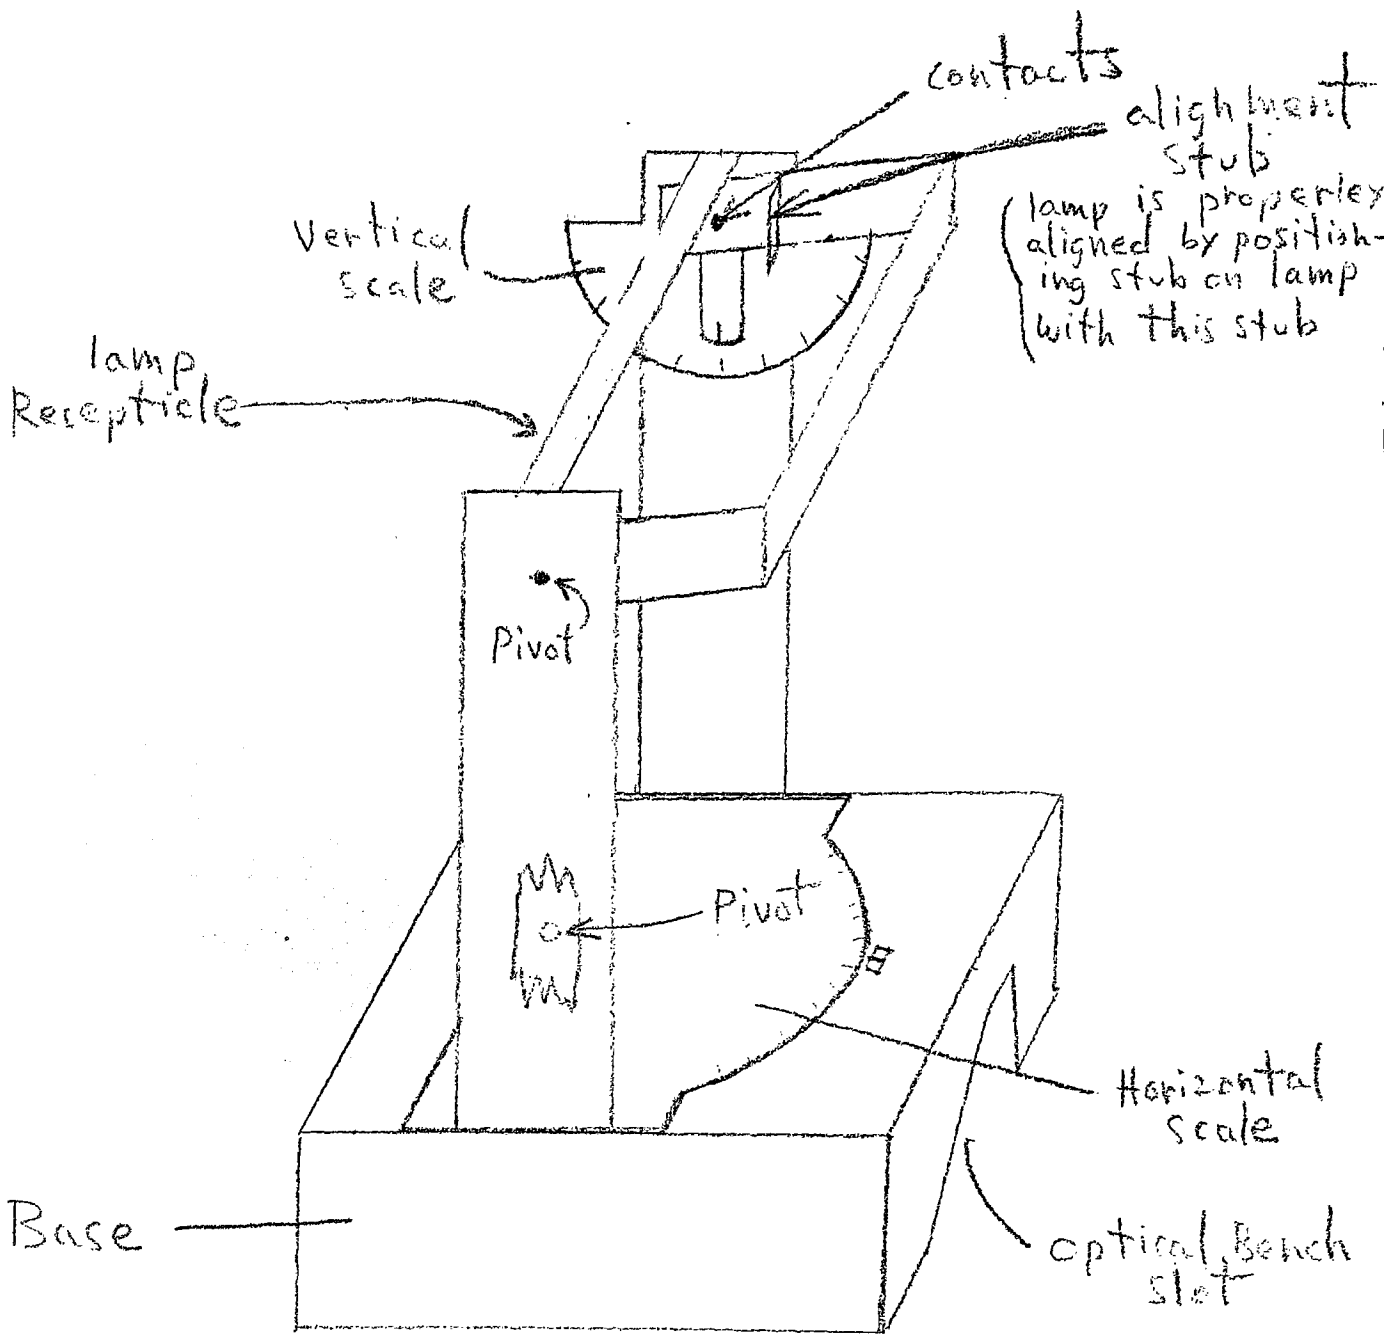 contacts
alighment
stub
(lamp is properley
aligned by positioh-
ing stub on lamp
with this stub
Vertical
scale
lamp
Recepticle
Pivot
Pivot
Horizontal
scale
Base
Optical Bench
slot